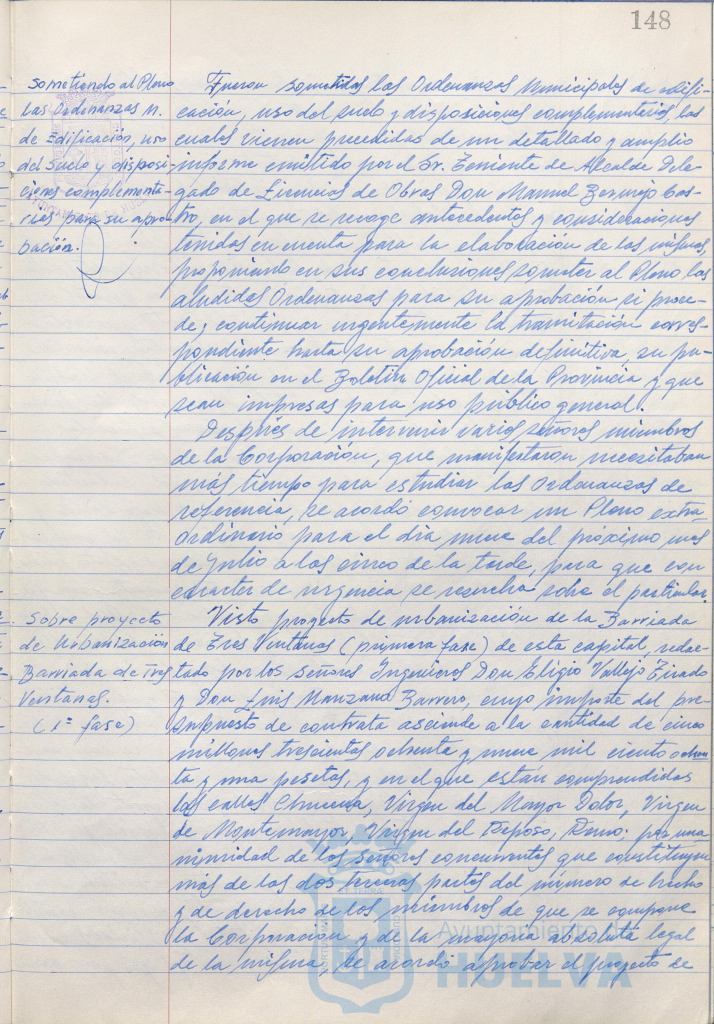 148
Sometiendo al Pleno
las Ordenanzas M.
de Edificación, uso
del Suelo y disposi
ciones complementa-
rias para su apro-
bación.
Fueron sometidas las Ordenanzas Municipales de edifi-
cación, uso del suelo y disposiciones complementarias las
cuales vienen precedidas de un detallado y amplio
informe emitido por el Sr. Teniente de Alcalde Dele-
gado de Licencias de Obras Don Manuel Bermejo Cas-
tro, en el que se recoge antecedentes y consideraciones
tenidas en cuenta para la elaboración de las mismas,
proponiendo en sus conclusiones someter al Pleno las
aludidas Ordenanzas para su aprobación si proce-
de, continuar urgentemente la tramitación corres-
pondiente hasta su aprobación definitiva, su pu-
blicación en el Boletín Oficial de la Provincia y que
sean impresas para uso público general.
Después de intervenir varios señores miembros
de la Corporación, que manifestaron necesitaban
más tiempo para estudiar las Ordenanzas de
referencia, se acordó convocar un Pleno extra-
ordinario para el día nueve del próximo mes
de Julio a las cinco de la tarde, para que con
caracter de urgencia se resuelva sobre el particular.
Sobre proyecto
de Urbanización
Barriada de Tres
Ventanas.
(1ª fase)
Visto proyecto de urbanización de la Barriada
de Tres Ventanas (primera fase) de esta capital, redac-
tado por los señores Ingenieros Don Eligio Vallejo Tirado
y Don Luis Manzano Barrero, cuyo importe del pre-
supuesto de contrata asciende a la cantidad de cinco
millones trescientas ochenta y nueve mil ciento ochen
ta y una pesetas, y en el que están comprendidas
las calles Chucena, Virgen del Mayor Dolor, Virgen
de Montemayor, Virgen del Reposo, por una
nimidad de los señores concurrentes que constituyen
más de las dos terceras partes del número de hecho
y de derecho de los miembros de que se compone
la Corporación y de la mayoría absoluta legal
de la misma, se acordó aprobar el proyecto de
Ayuntamiento de
HUELVA